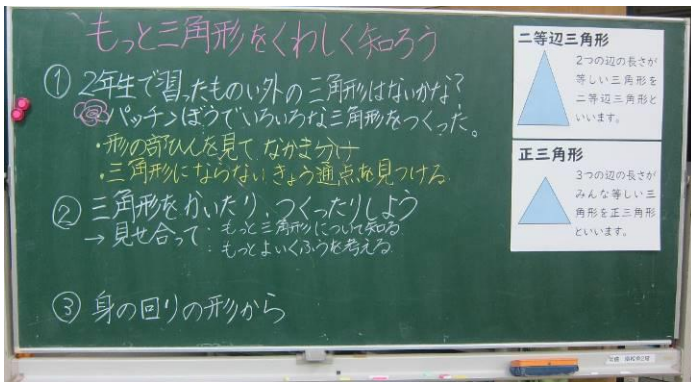 もっと三角形をくわしく知ろう
① 2年生で習ったものい外の三角形はないかな?
パッチンぼうでいろいろな三角形をつくった。
・形の部ひんを見て なかま分け
・三角形にならないきょう通点を見つける
② 三角形をかいたり、つくったりしよう
→ 見せ合って:もっと三角形について知る
:もっとよいくふうを考える
③ 身の回りの形から
二等辺三角形
2つの辺の長さが
等しい三角形を
二等辺三角形と
いいます。
正三角形
3つの辺の長さが
みんな等しい三
角形を正三角形
といいます。